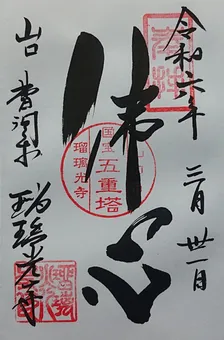 令和六年 三月 卅一日
佛心
国宝
五重塔
瑠璃光寺
山口 香山
瑠璃光寺